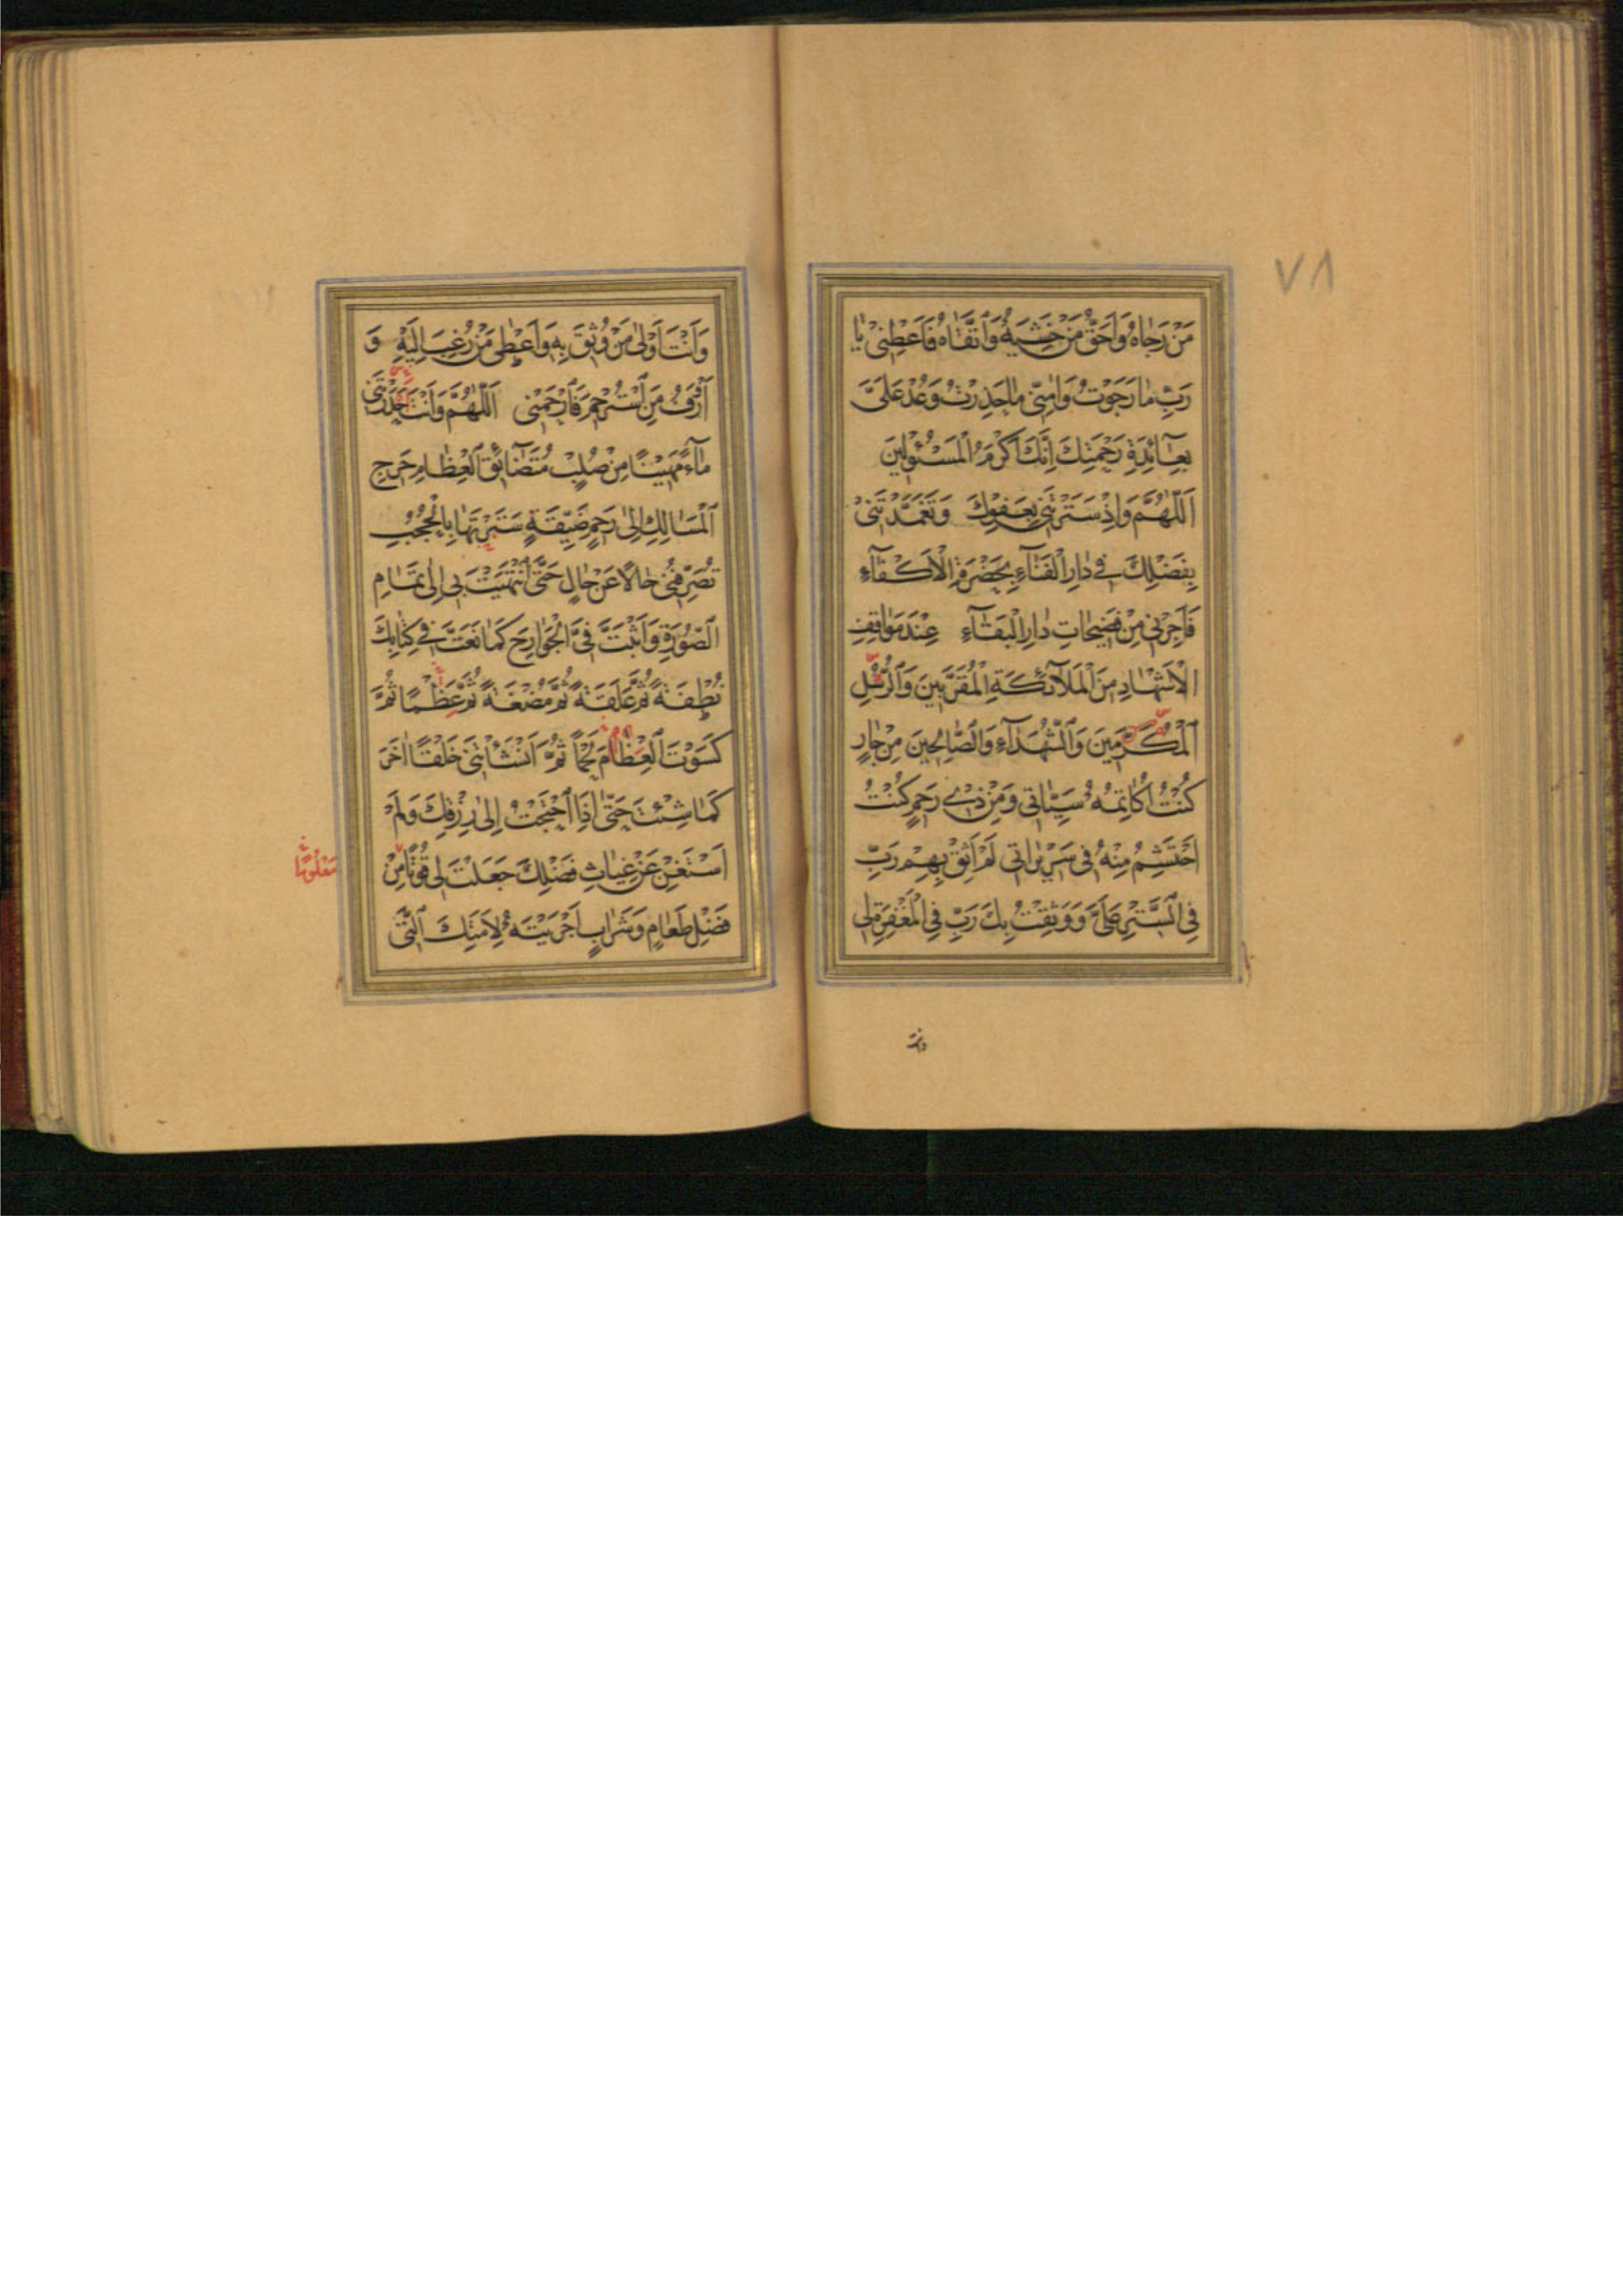 ٧٨
مَنْ رَجَاهُ وَاَحَقُّ مَنْ خَشِيَهُ وَاتَّقَاهُ فَاَعْطِنِي يَا
رَبِّ مَا رَجَوْتُ وَاٰمِنِّي مَا حَذِرْتُ وَعُدْ عَلَيَّ
بِعَآئِدَةِ رَحْمَتِكَ اِنَّكَ اَكْرَمُ الْمَسْئُولِينَ
اَللّٰهُمَّ وَاِذْ سَتَرْتَنِي بِعَفْوِكَ وَتَغَمَّدْتَنِي
بِفَضْلِكَ فِي دَارِ الْفَنَآءِ بِحَضْرَةِ الْاَكْفَآءِ
فَاَجِرْنِي مِنْ فَضِيحَاتِ دَارِ الْبَقَآءِ عِنْدَ مَوَاقِفِ
الْاَشْهَادِ مِنَ الْمَلَآئِكَةِ الْمُقَرَّبِينَ وَالرُّسُلِ
الْمُكَرَّمِينَ وَالشُّهَدَآءِ وَالصَّالِحِينَ مِنْ جَارٍ
كُنْتُ اُكَاتِمُهُ سَيِّئَاتِي وَمِنْ ذِي رَحِمٍ كُنْتُ
اَحْتَشِمُ مِنْهُ فِي سَرِيرَاتِي لَمْ اَثِقْ بِهِمْ رَبِّ
فِي السِّتْرِ عَلَيَّ وَوَثِقْتُ بِكَ رَبِّ فِي الْمَغْفِرَةِ لِي
وَاَنْتَ اَوْلٰى مَنْ وُثِقَ بِهِ وَاَعْطٰى مَنْ رُغِبَ اِلَيْهِ وَ
اَرْاَفُ مَنِ اسْتُرْحِمَ فَارْحَمْنِي اَللّٰهُمَّ وَاَنْتَ حَدَرْتَنِي
مَآءً مَهِينًا مِنْ صُلْبٍ مُتَضَآئِقِ الْعِظَامِ حَرِجِ
الْمَسَالِكِ اِلٰى رَحِمٍ ضَيِّقَةٍ سَتَرْتَهَا بِالْحُجُبِ
تُصَرِّفُنِي حَالًا عَنْ حَالٍ حَتَّى انْتَهَيْتَ بِي اِلٰى تَمَامِ
الصُّورَةِ وَاَثْبَتَّ فِيَّ الْجَوَارِحَ كَمَا نَعَتَّ فِي كِتَابِكَ
نُطْفَةً ثُمَّ عَلَقَةً ثُمَّ مُضْغَةً ثُمَّ عَظْمًا ثُمَّ
كَسَوْتَ الْعِظَامَ لَحْمًا ثُمَّ اَنْشَأْتَنِي خَلْقًا اٰخَرَ
كَمَا شِئْتَ حَتّٰى اِذَا احْتَجْتُ اِلٰى رِزْقِكَ وَلَمْ
اَسْتَغْنِ عَنْ غِيَاثِ فَضْلِكَ جَعَلْتَ لِي قُوتًا مِنْ
مَعْلُومًا
فَضْلِ طَعَامٍ وَشَرَابٍ اَجْرَيْتَهُ لِاَمَتِكَ الَّتِي